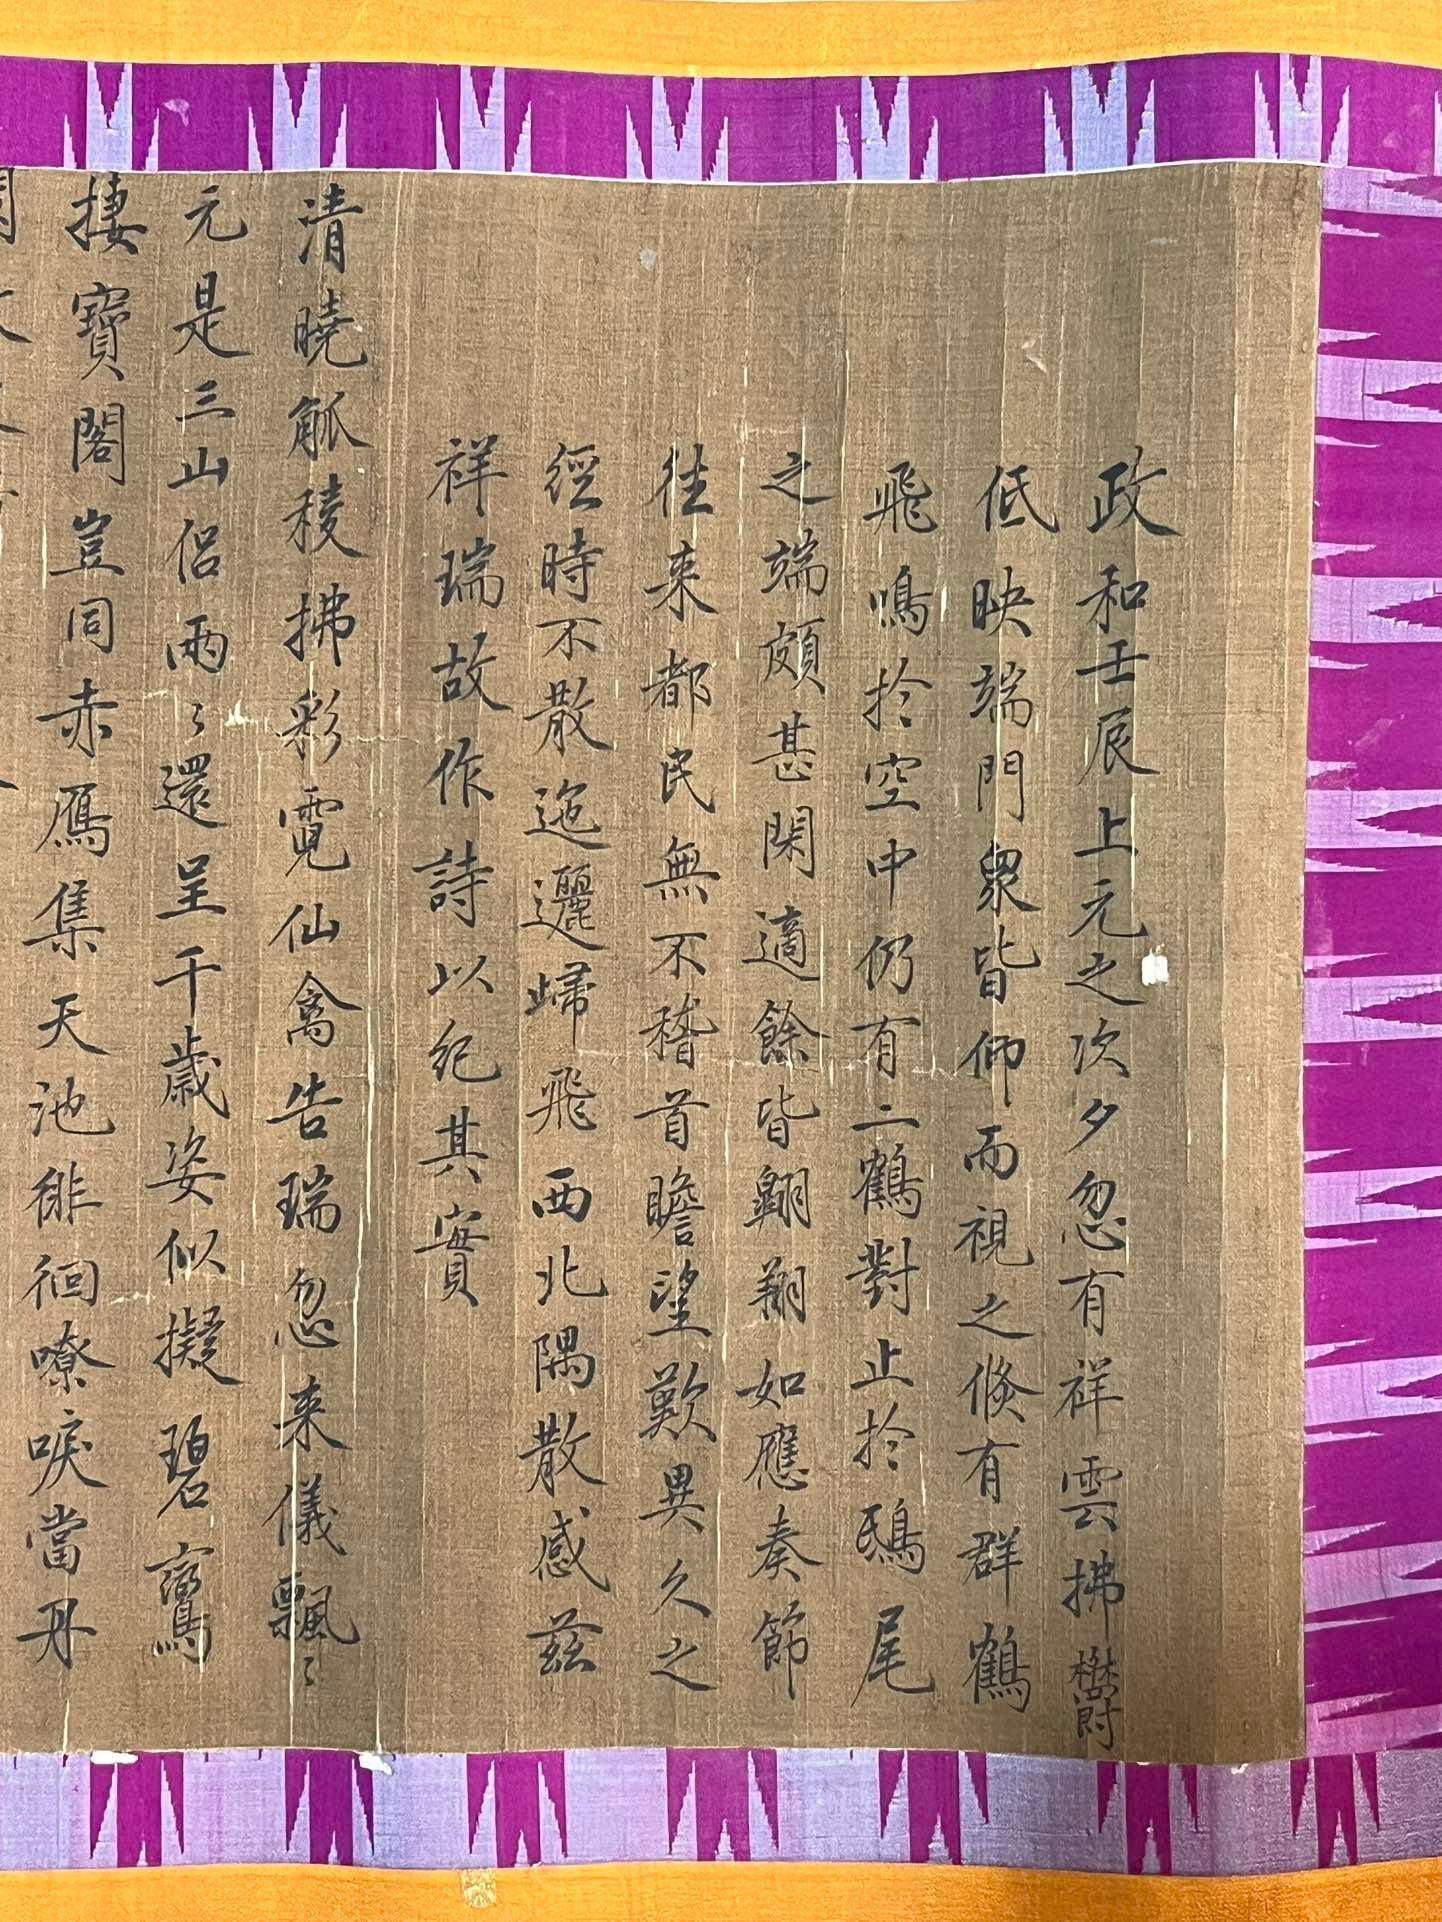 政和壬辰上元之次夕忽有祥雲拂欝
低映端門衆皆仰而視之倏有群鶴
飛鳴扵空中仍有二鶴對止扵鴟尾
之端頗甚閑適餘皆翱翔如應奏節
徃来都民無不稽首瞻望歎異久之
經時不散迤邐歸飛西北隅散感茲
祥瑞故作詩以紀其實
清曉觚稜拂彩霓仙禽告瑞忽来儀飄〻
元是三山侶兩〻還呈千歲姿似擬碧鸞
捿寶閣豈同赤鴈集天池徘徊嘹唳當丹